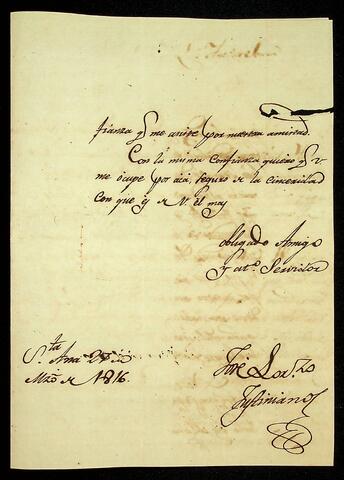 fianza q.e me asiste por nuestra amistad.
Con la misma confianza quiero q.e V
me ocupe por acá, seguro de la sinceridad
con que es de V. el may
obligado Amigo
y at.o Servidor
S.ta Ana 27 de
Mzo de 1816.
José Lor.zo
Justiniano